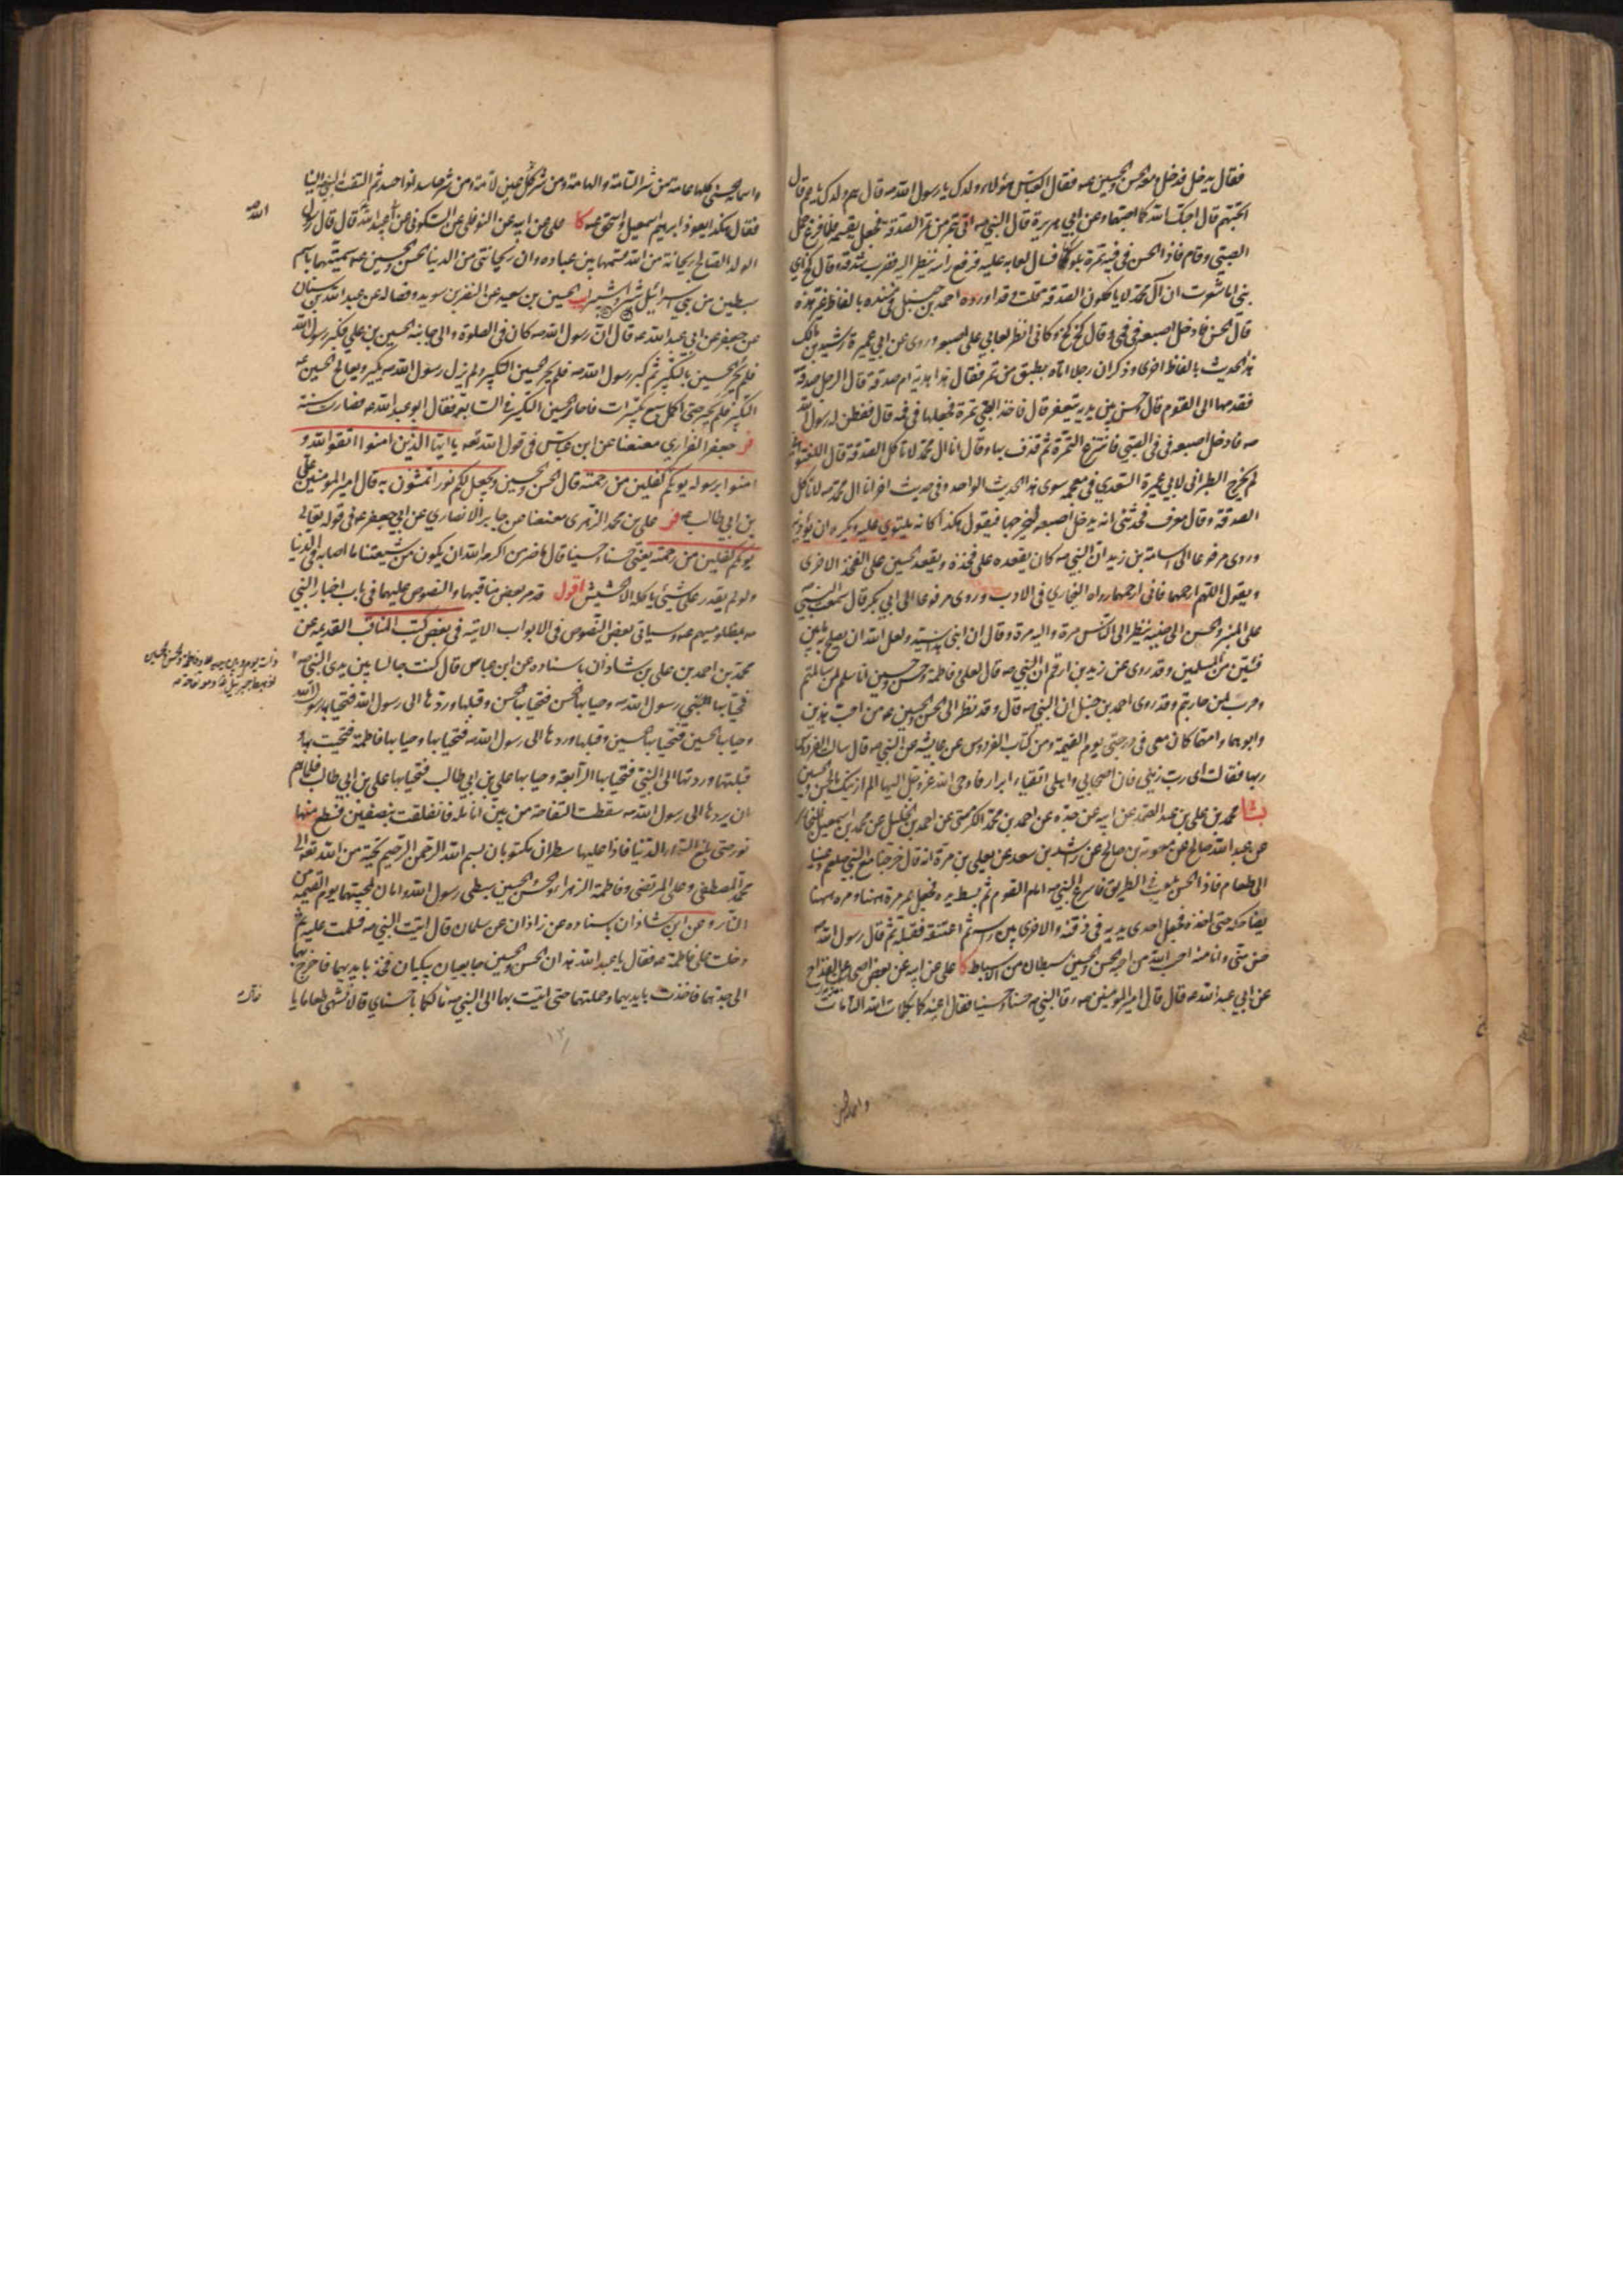 فقال يدخل فدخل ومعه الحسن والحسين عه فقال العباس هؤلاء ولدك يا رسول الله صه قال هم ولدك يا عم قال
اتحبهم قال احبك الله كما احبتهما وعن ابي هريرة قال النبي صه اتي بتمر من تمر الصدقة فجعل يقسمه فلما فرغ حمل
الصبي وقام فاذا الحسن في فيه تمرة يلوكها فسال لعابه عليه فرفع راسه ينظر اليه فضرب شدقه وقال كخ اي
بني اما شعرت ان آل محمد لا ياكلون الصدقة قلت وقد اورده احمد بن حنبل في مسنده بالفاظ غير هذه
قال الحسن فادخل اصبعه في في وقال كخ كخ وكاني انظر لعابي على اصبعه وروى عن ابي عميرة رشيد بن مالك
هذا الحديث بالفاظ اخرى وذكر ان رجلا اتاه بطبق من تمر فقال هذا هدية ام صدقة قال الرجل صدقة
فقدمها الى القوم قال وحسن بين يديه يتعفر قال فاخذ الصبي تمرة فجعلها في فيه قال ففطن له رسول الله
صه فادخل اصبعه في في الصبي فانتزع التمرة ثم قذف بها وقال انا آل محمد لا ناكل الصدقة قال
لم يخرج الطبراني لابي عميرة السعدي في معجمه سوى هذا الحديث الواحد وفي حديث اخر انا آل محمد صه لا ناكل
الصدقة وقال معرف فحدثني انه يدخل اصبعه ليخرجها فيقول هكذا كانه يلتوي عليه ويكره ان يؤذيه
وروى مرفوعا الى اسامة بن زيد ان النبي صه كان يقعده على فخذه ويقعد الحسين على الفخذ الاخرى
ويقول اللهم ارحمهما فاني ارحمهما رواه البخاري في الادب وروى مرفوعا الى ابي بكر قال سمعت النبي صه
على المنبر والحسن الى جنبه ينظر الى الناس مرة واليه مرة وقال ان ابني هذا سيد ولعل الله ان يصلح به بين
فئتين من المسلمين وقد روى عن زيد بن ارقم ان النبي صه قال لعلي وفاطمة وحسن وحسين انا سلم لمن سالمتم
وحرب لمن حاربتم وقد روى احمد بن حنبل ان النبي صه قال وقد نظر الى الحسن والحسين عه من احب هذين
واباهما وامهما كان معي في درجتي يوم القيمة ومن كتاب الفردوس عن عايشة عن النبي صه قال سالت الفردوس
ربها فقالت اي رب زيني فان اصحابي واهلي اتقياء ابرار فاوحى الله عز وجل اليها الم ازينك بالحسن والحسين
بشا محمد بن علي بن عبد الصمد عن ابيه عن جده عن احمد بن محمد الكرخي عن احمد بن الخليل عن محمد بن اسمعيل البخاري
عن عبد الله بن صالح عن معوية بن صالح عن راشد بن سعد عن يعلى بن مرة انه قال خرجنا مع النبي صلعم ودعينا
الى طعام فاذا الحسن يلعب في الطريق فاسرع النبي صه امام القوم ثم بسط يده فجعل يمر مرة ههنا ومرة ههنا
يضاحكه حتى اخذه فجعل احدى يديه في ذقنه والاخرى بين راسه ثم اعتنقه فقبله ثم قال رسول الله صه
حسن مني وانا منه احب الله من احبه الحسن والحسين سبطان من الاسباط كا علي عن ابيه عن بعض اصحابه عن القداح
عن ابي عبد الله عه قال قال امير المؤمنين عه رقا النبي صه حسنا وحسينا فقال اعيذكما بكلمات الله التامات
واسمائه الحسنى كلها عامة من شر السامة والهامة ومن شر كل عين لامة ومن شر حاسد اذا حسد ثم التفت النبي الينا
فقال هكذا يعوذ ابرهيم اسمعيل واسحق عه كا علي عن ابيه عن النوفلي عن السكوني عن ابي عبد الله قال قال رسول
الله صه
الولد الصالح ريحانة من الله قسمها بين عباده وان ريحانتي من الدنيا الحسن والحسين عه سميتهما باسم
سبطين من بني اسرائيل شبر وشبير يب الحسين بن سعيد عن النضر بن سويد وفضالة عن عبد الله بن سنان
عن حفص عن ابي عبد الله عه قال ان رسول الله صه كان في الصلوة والى جانبه الحسين بن علي فكبر رسول الله
فلم يحر الحسين بالتكبير ثم كبر رسول الله صه فلم يحر الحسين التكبير ولم يزل رسول الله صه يكبر ويعالج الحسين عه
التكبير فلم يحر حتى اكمل سبع تكبيرات فاحار الحسين التكبير في السابعة فقال ابو عبد الله عه فصارت سنة
فر جعفر الفزاري معنعنا عن ابن عباس في قول الله تعه يا ايها الذين امنوا اتقوا الله و
امنوا برسوله يؤتكم كفلين من رحمته قال الحسن والحسين ويجعل لكم نورا تمشون به قال امير المؤمنين علي
بن ابي طالب عه فر علي بن محمد الزهري معنعنا عن جابر الانصاري عن ابي جعفر عه في قوله تعالى
يؤتكم كفلين من رحمته يعني حسنا وحسينا قال ما ضر من اكرمه الله ان يكون من شيعتنا ما اصابه في الدنيا
ولو لم يقدر على شيئ ياكله الا الحشيش اقول قد مر بعض مناقبهما والنصوص عليهما في باب اخبار النبي
صه بمظلوميتهم عه وسياتي بعض النصوص في الابواب الاتية في بعض كتب المناقب القديمة عن
محمد بن احمد بن علي بن شاذان باسناده عن ابن عباس قال كنت جالسا بين يدي النبي صه
فتحيا بها النبي رسول الله صه وحيا بها الحسن فتحيا بها الحسن وقبلها وردها الى رسول الله فتحيا بها رسول الله
وحيا بها الحسين فتحيا بها الحسين وقبلها وردها الى رسول الله صه فتحيا بها وحيا بها فاطمة فتحيت بها و
قبلتها وردتها الى النبي فتحيا بها الرابعة وحيا بها علي بن ابي طالب فتحيا بها علي بن ابي طالب فلما هم
ان يردها الى رسول الله صه سقطت التفاحة من بين انامله فانفلقت بنصفين فسطع منها
نور حتى بلغ السماء الدنيا فاذا عليها سطران مكتوبان بسم الله الرحمن الرحيم تحية من الله تعالى الى
محمد المصطفى وعلي المرتضى وفاطمة الزهراء والحسن والحسين سبطي رسول الله وامان لمحبيهما يوم القيمة من
النار وعن ابن شاذان باسناده عن زاذان عن سلمان قال اتيت النبي صه فسلمت عليه ثم
دخلت على فاطمة عه فقال يا عبد الله هذان الحسن والحسين جايعان يبكيان فخذ بايديهما فاخرج بهما
الى جدهما فاخذت بايديهما وحملتهما حتى اتيت بهما الى النبي صه فقال ما لكما يا حسناي قالا نشتهي طعاما يا
١٣